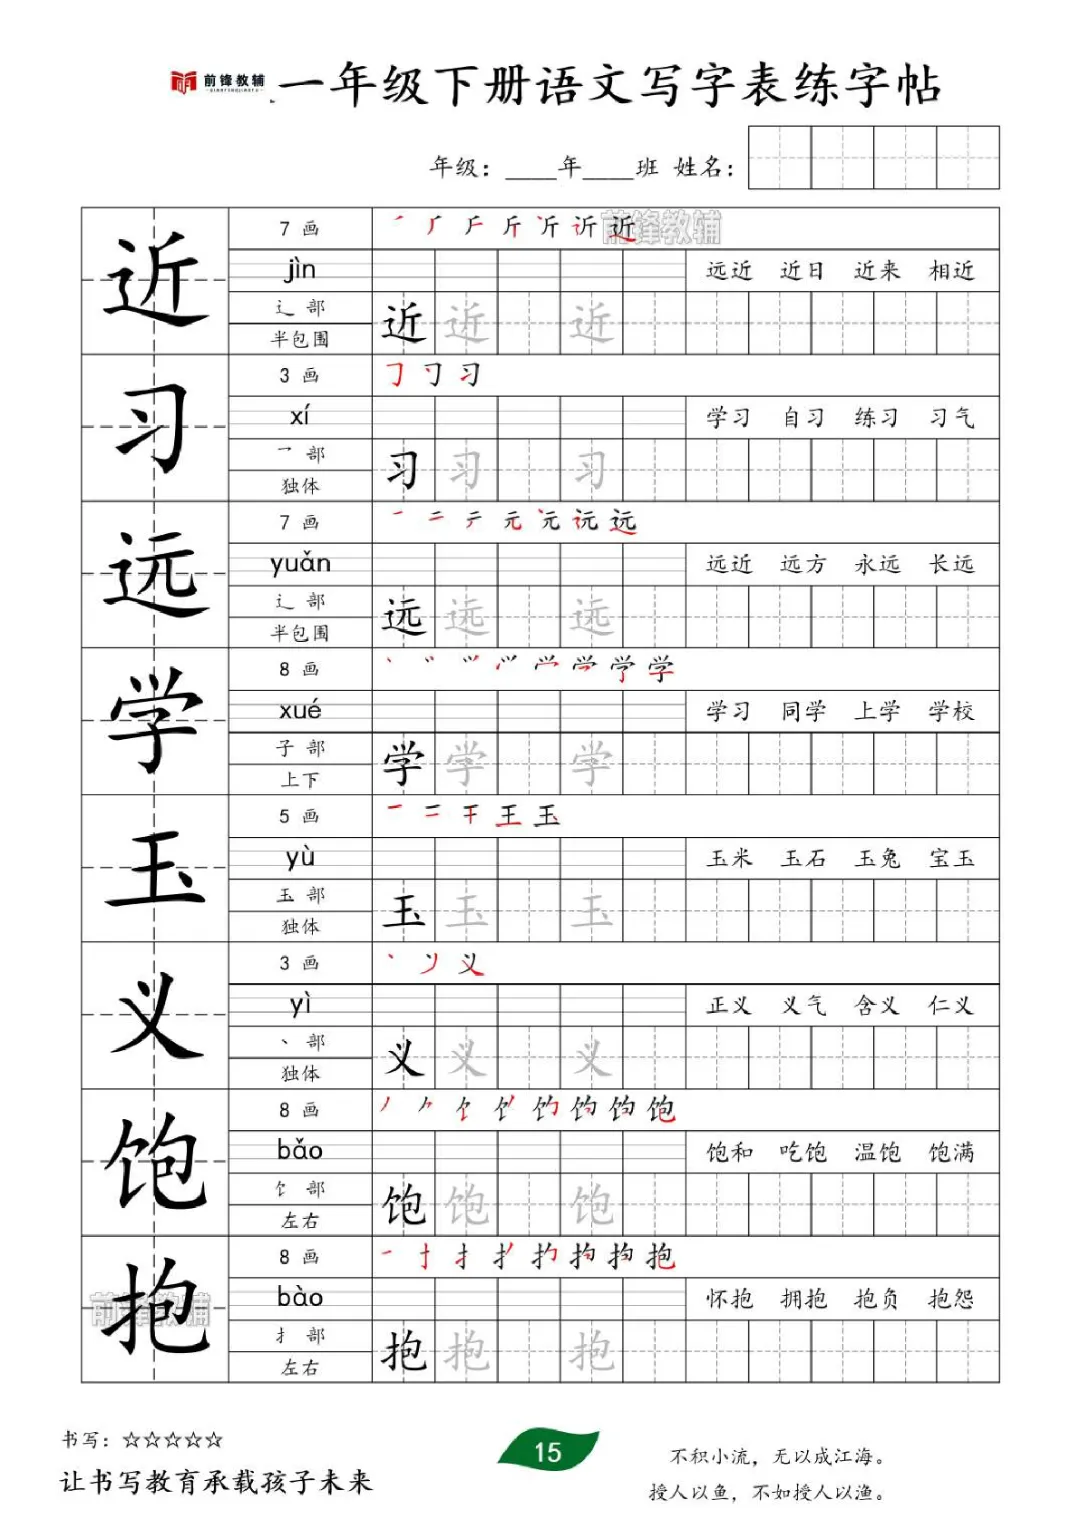 前锋教辅
一年级下册语文写字表练字帖
年级：____年____班 姓名：
近
7 画
前锋教辅
jìn
远近 近日 近来 相近
辶 部
近 近 近
半包围
习
3 画
xí
学习 自习 练习 习气
乛 部
习 习 习
独体
远
7 画
yuǎn
远近 远方 永远 长远
辶 部
远 远 远
半包围
学
8 画
xué
学习 同学 上学 学校
子 部
学 学 学
上下
玉
5 画
yù
玉米 玉石 玉兔 宝玉
玉 部
玉 玉 玉
独体
义
3 画
yì
正义 义气 含义 仁义
丶 部
义 义 义
独体
饱
8 画
bǎo
饱和 吃饱 温饱 饱满
饣 部
饱 饱 饱
左右
抱
前锋教辅
8 画
bào
怀抱 拥抱 抱负 抱怨
扌 部
抱 抱 抱
左右
书写：☆☆☆☆☆
让书写教育承载孩子未来
15
不积小流，无以成江海。
授人以鱼，不如授人以渔。